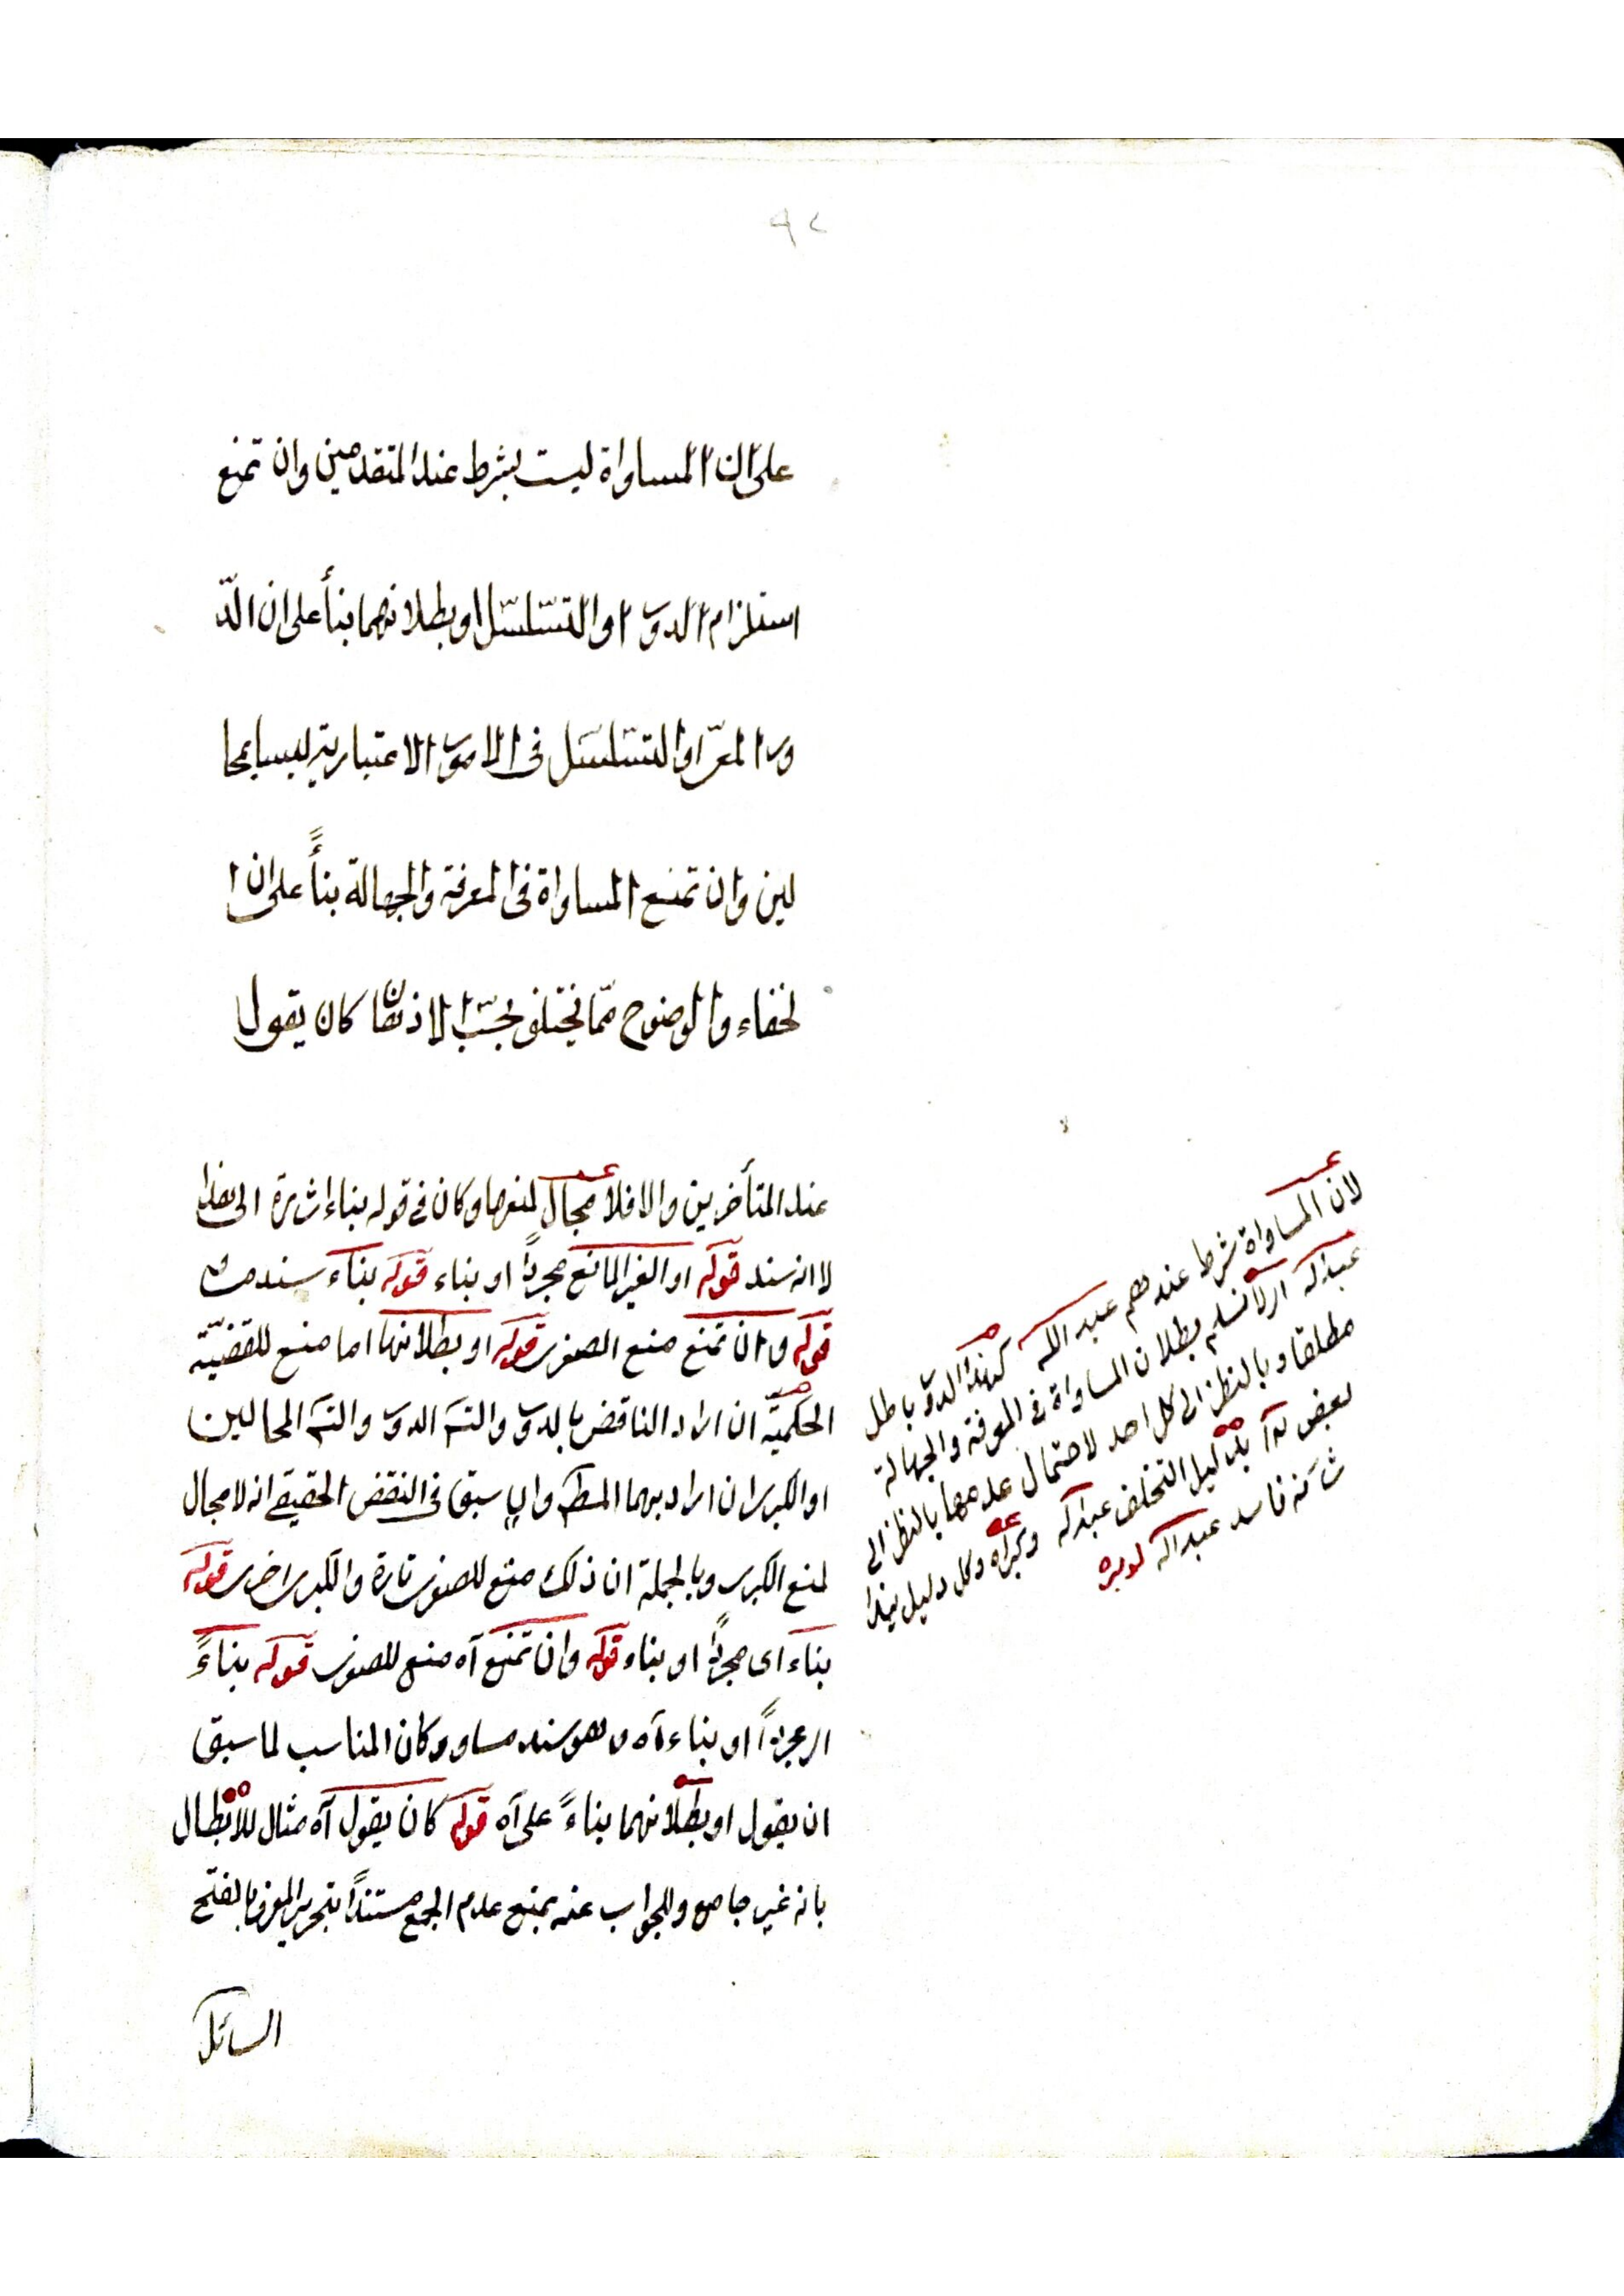 ٩٢
على ان المساواة ليست بشرط عند المتقدمين وان تمنع
استلزام الدور او التسلسل او بطلانهما بنأ على ان الد
ور المعى او التسلسل فى الامور الاعتبارية ليسا بمحا
لين وان تمنع المساواة فى المعرفة والجهالة بنأً على ان ا
لخفاء والوضوح مما يختلف بحسب الاذهان كان يقول
عند المتأخرين والا فلا مجال لمنعها وكان فى قوله بناء اشارة الى هذا
لا انه سند قوله او الغير المانع مجردًا او بناء قوله بناء سند
قوله وان تمنع منع الصغرى قوله او بطلانهما اما منع للقضيّة
الحكميّة ان اراد الناقض بالدور والتس الدور والتس المحالين
او الكبرى ان اراد بهما المط سبق فى النقض الحقيقى انه لا مجال
لمنع الكبرى وبالجملة ان ذلك منع للصغرى تارة والكبرى اخرى قوله
بناء اى مجردًا او بناء قوله وان تمنع آه منع للصغرى قوله بناءً
اى مجردًا او بناء آه وهو سند مساو وكان المناسب لما سبق
ان يقول او بطلانهما بناءً على آه قوله كان يقول آه مثال للابطال
بانه غير جامع والجواب عنه بمنع عدم الجمع مستندًا بتحرير المعرف بالفتح
السائل
لان المساواة شرط عندهم عبد الله كهذا الدور باطل
عبد الله اى لا نسلم بطلان المساواة فى المعرفة والجهالة
مطلقا وبالنظر الى كل احد لاحتمال عدمها بالنظر الى
بعض بدليل التخلف عبد الله وكبراه وكل دليل هذا
شأنه فاسد عبد الله